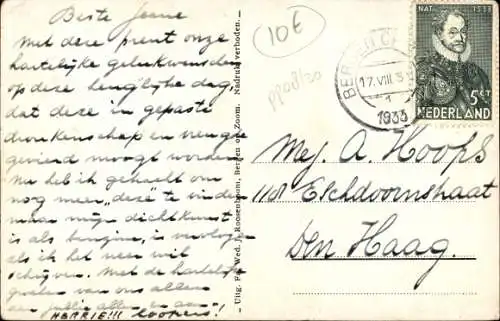 Beste Jeene
Met deze prent onze
hartelijke gelukwenschen
op deze heuglijke dag
dat deze in gepaste
dronkenschap en vreugde
gevierd moogt worden
Nu heb ik getracht om
nog meer „deze” te vinden
maar mijn dichtkunst
is als
als ik het neer wil
schrijven. Met de hartelijke
groeten van ons allen
aan jullie allen en aan
HERRIE!!! loopers!
Uitg. Fa. Wed. J. Roosenboom, Bergen op Zoom. Nadruk verboden.
10E
BERGEN OP
17.VIII.3
1
1933
NAT. 1533
5 CT
NEDERLAND
Mej. A. Hoops
1181 Elschdoornstraat
Den Haag.